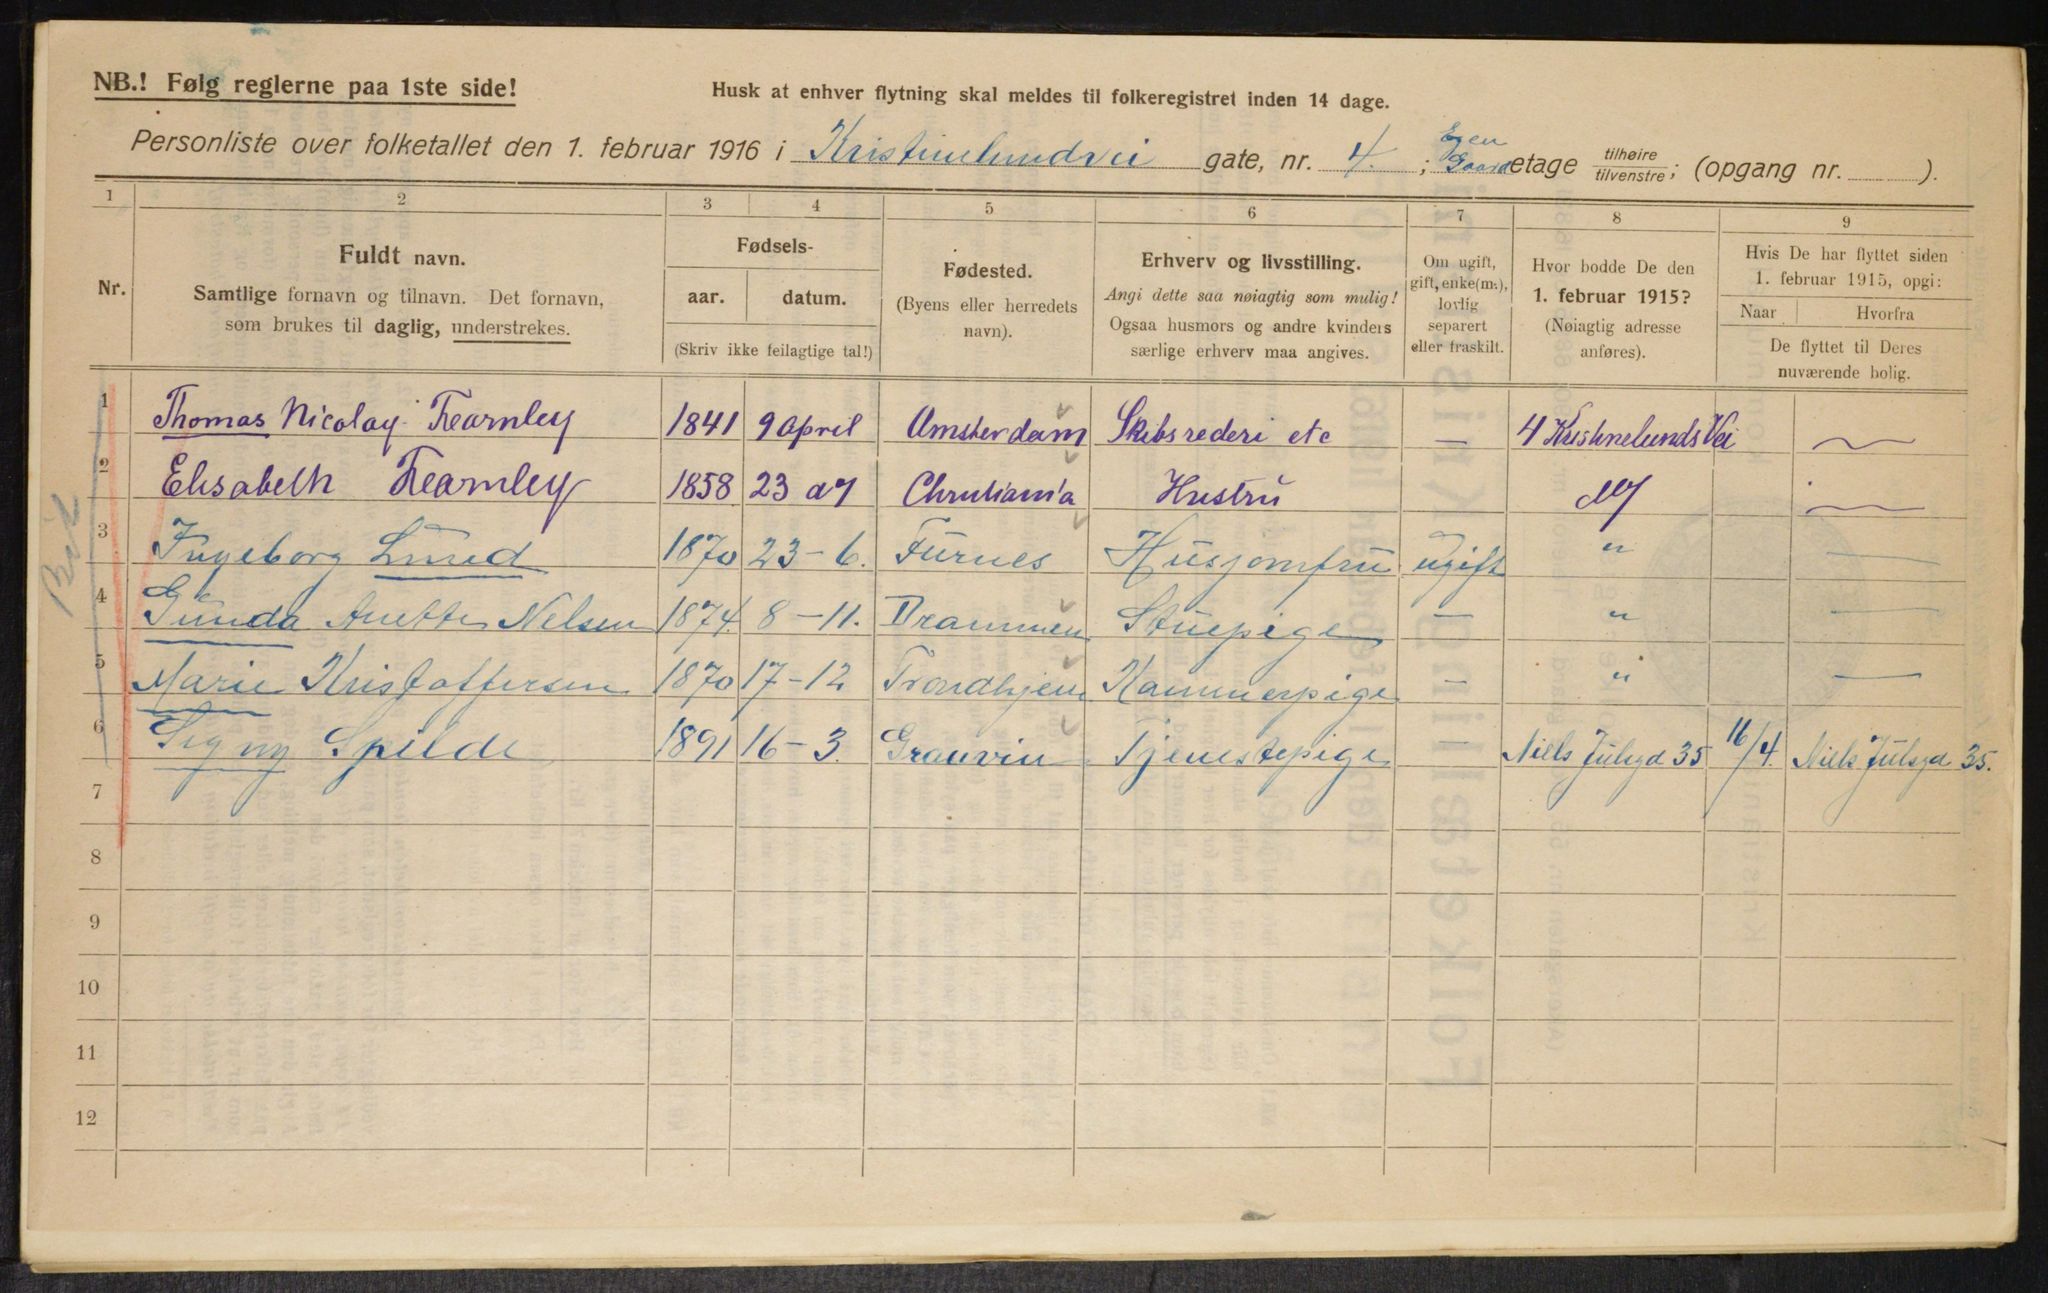 NB.! Følg reglerne paa 1ste side!
Husk at enhver flytning skal meldes til folkeregistret inden 14 dage.
Personliste over folketallet den 1. februar 1916 i Kristinelundvei gate, nr. 4 ; Egen Gaard etage tilhøire tilvenstre; (opgang nr. ).
1 2 3 4 5 6 7 8 9
Nr.
Fuldt navn. Samtlige fornavn og tilnavn. Det fornavn, som brukes til daglig, understrekes.
Fødsels-
aar. datum.
(Skriv ikke feilagtige tal!)
Fødested. (Byens eller herredets navn).
Erhverv og livsstilling. Angi dette saa nøiagtig som mulig! Ogsaa husmors og andre kvinders særlige erhverv maa angives.
Om ugift, gift, enke(m.), lovlig separert eller fraskilt.
Hvor bodde De den 1. februar 1915? (Nøiagtig adresse anføres).
Hvis De har flyttet siden 1. februar 1915, opgi:
Naar Hvorfra
De flyttet til Deres nuværende bolig.
1 Thomas Nicolay Fearnley 1841 9 april Amsterdam Skibsrederi etc — 4 Kristinelunds Vei —
2 Elisabeth Fearnley 1858 23 Christiania Hustru —
3 Ingeborg Lund 1870 23-6. Furnes Husjomfru ugift " —
4 Gunda Anette Nelsen 1874. 8-11. Drammen Stuepige — " —
5 Marie Kristoffersen 1870 17-12 Trondhjem Kammerpige — " —
6 Signy Spilde 1891 16-3. Granvin Tjenestepige — Niels Julsgd 35 16/4. Niels Julsgd 35.
7
8
9
10
11
12